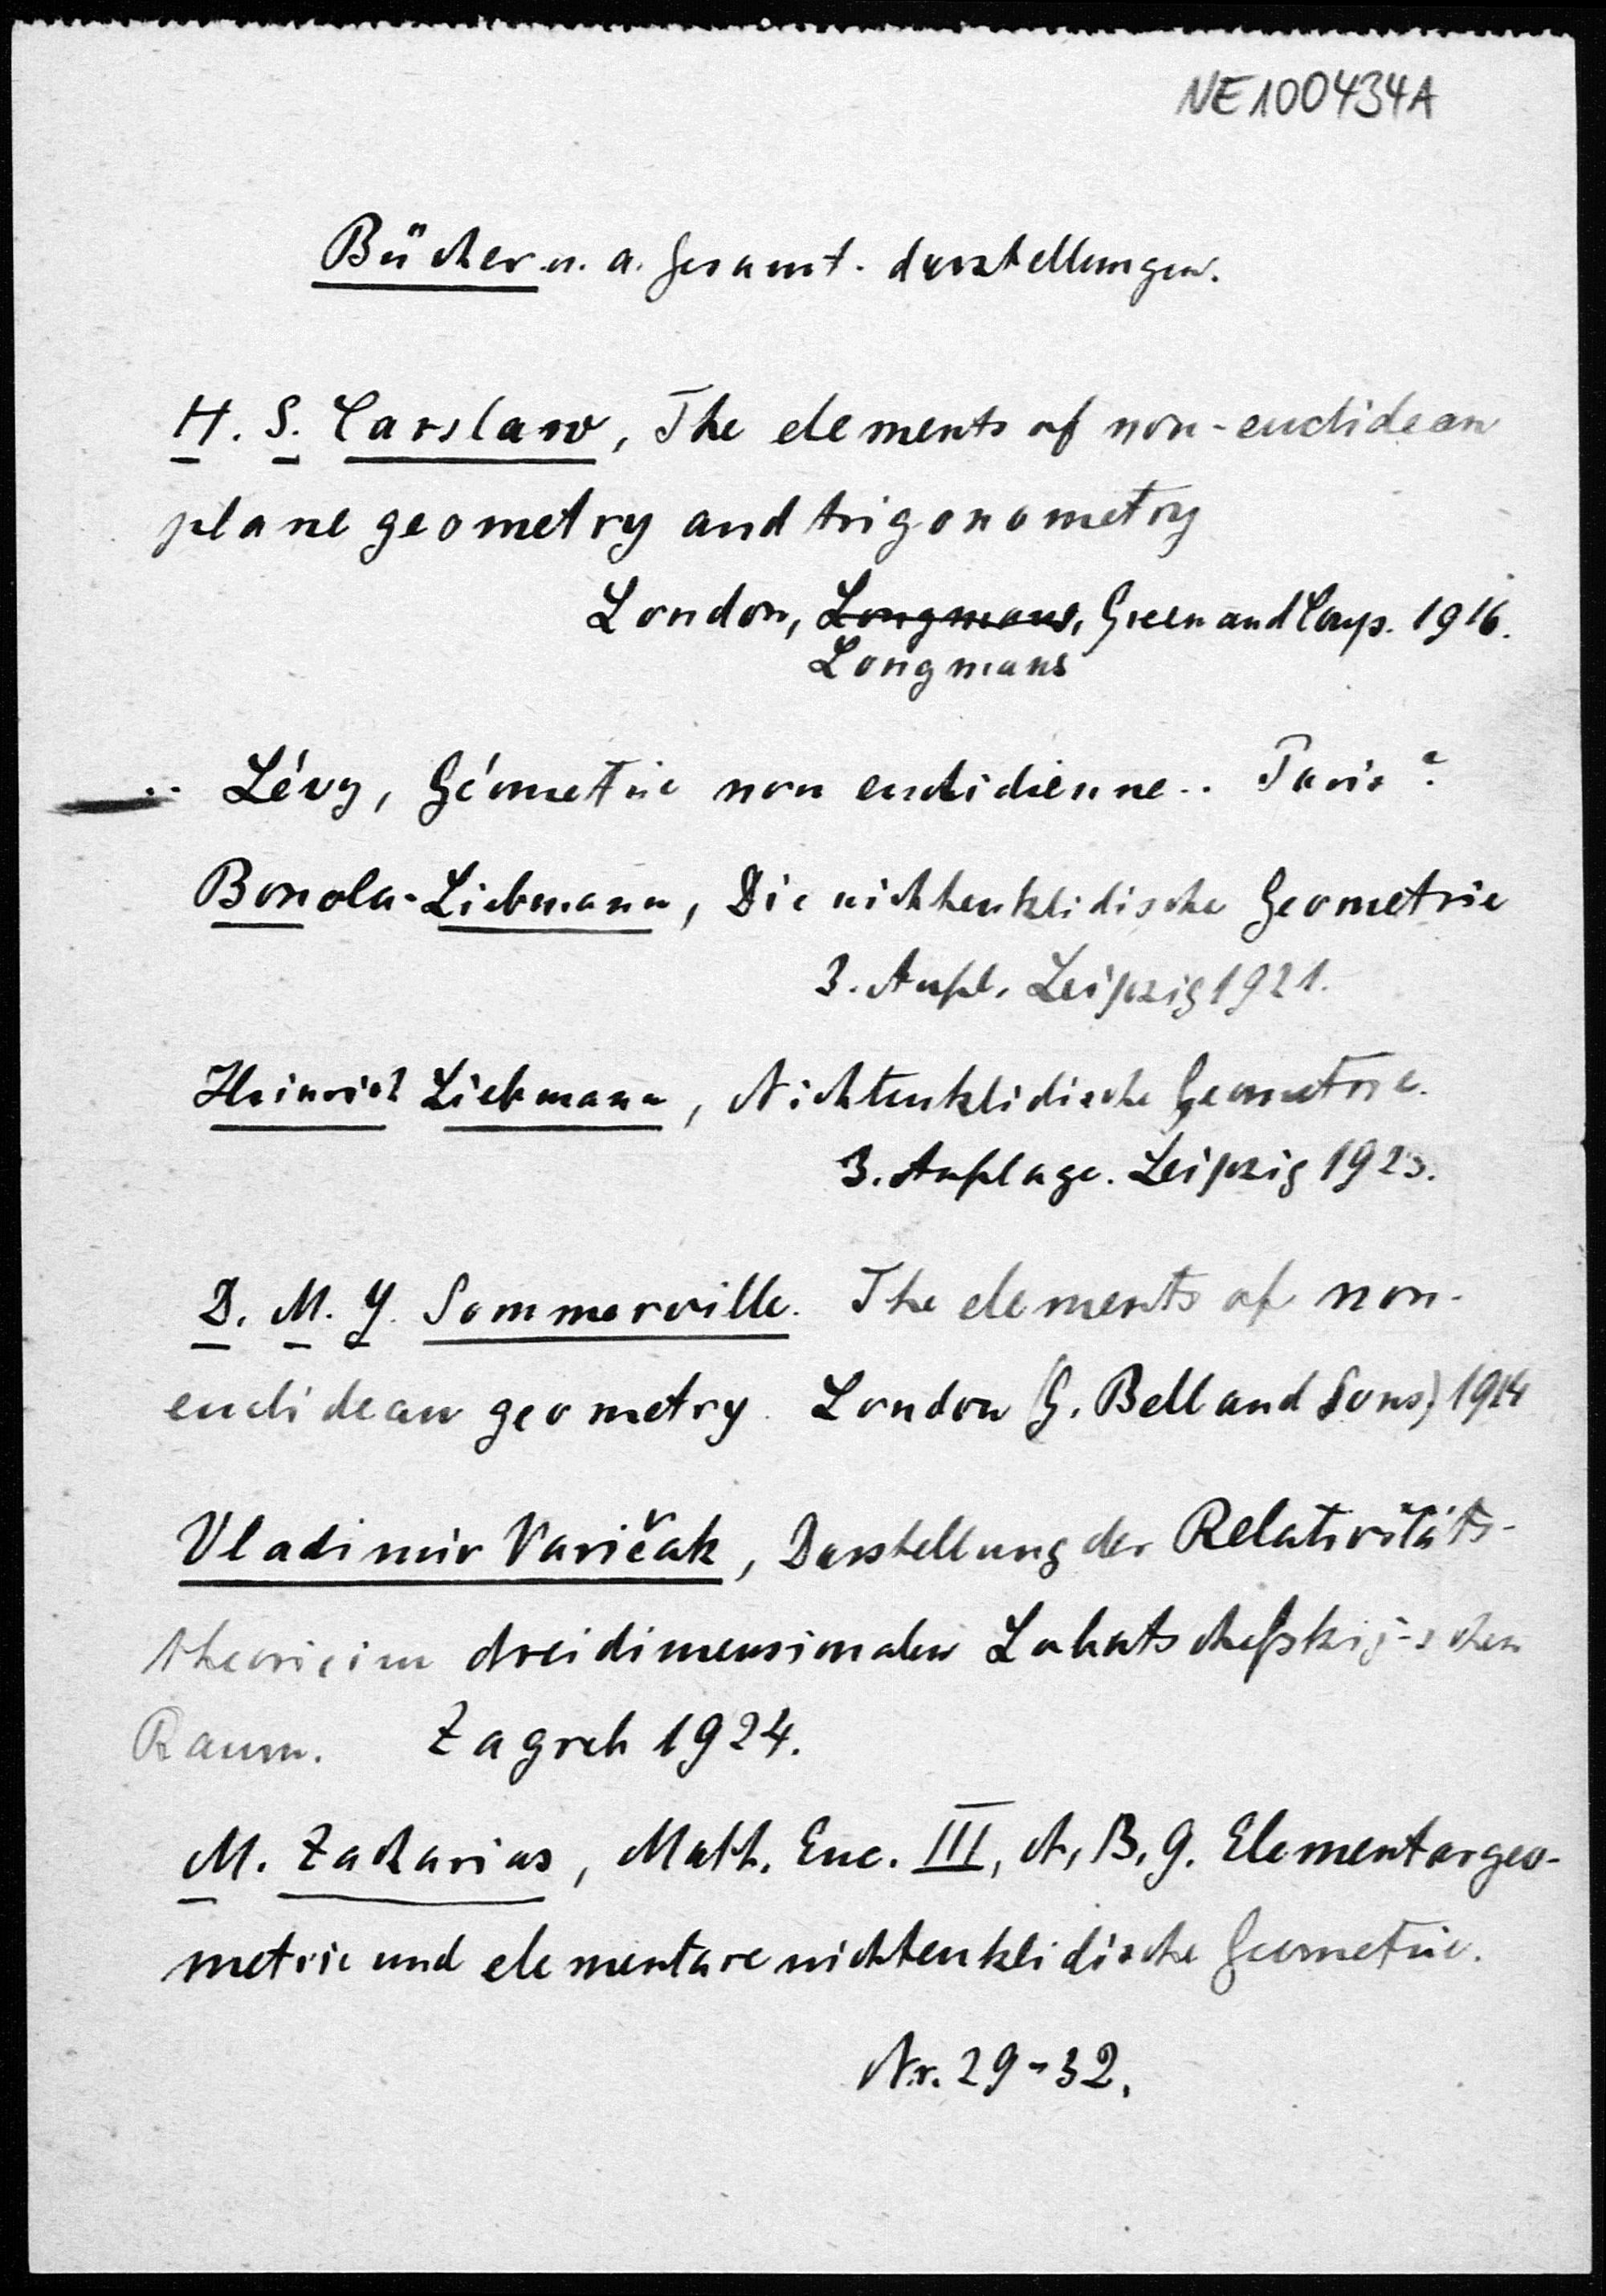 NE100434A
Bücher u. a. Gesamt-darstellungen.
H. S. Carslaw, The elements of non-euclidean
plane geometry and trigonometry
London, Longmans, Green and Comp. 1916.
Longmans
.. Lévy, Géometrie non euclidienne.. Paris?
Bonola-Liebmann, Die nichteuklidische Geometrie
3. Aufl. Leipzig 1921.
Heinrich Liebmann, Nichteuklidische Geometrie.
3. Auflage. Leipzig 1923.
D. M. Y. Sommerville. The elements of non-
euclidean geometry. London (G. Bell and Sons) 1914
Vladimir Varičak, Darstellung der Relativitäts-
theorie im dreidimensionalen Lobatschefskij-schen
Raum. Zagreb 1924.
M. Zacharias, Math. Enc. III, A, B, 9. Elementargeo-
metrie und elementare nichteuklidische Geometrie.
Nr. 29-32.